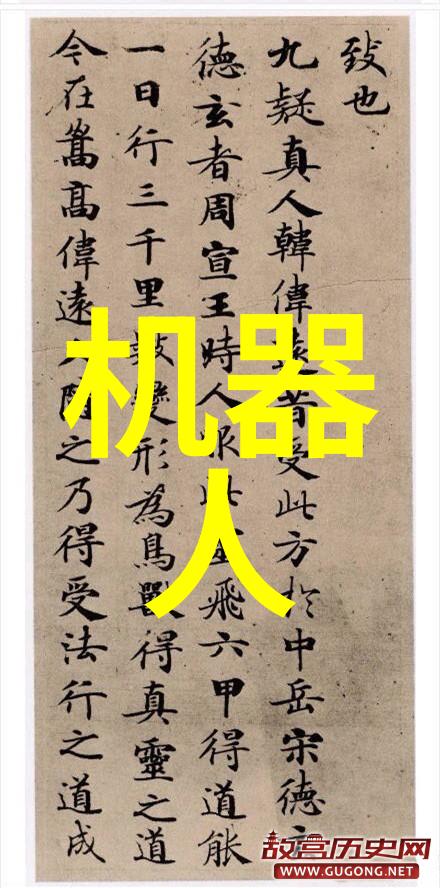 致也
九疑真人韓偉遠昔受此方於中岳宋德玄
德玄者周宣王時人服此靈飛六甲得道能
一日行三千里數變形為鳥獸得真靈之道
今在嵩高偉遠久隨之乃得受法行之道成
机器
人
故宫历史网
WWW.GUGONG.NET